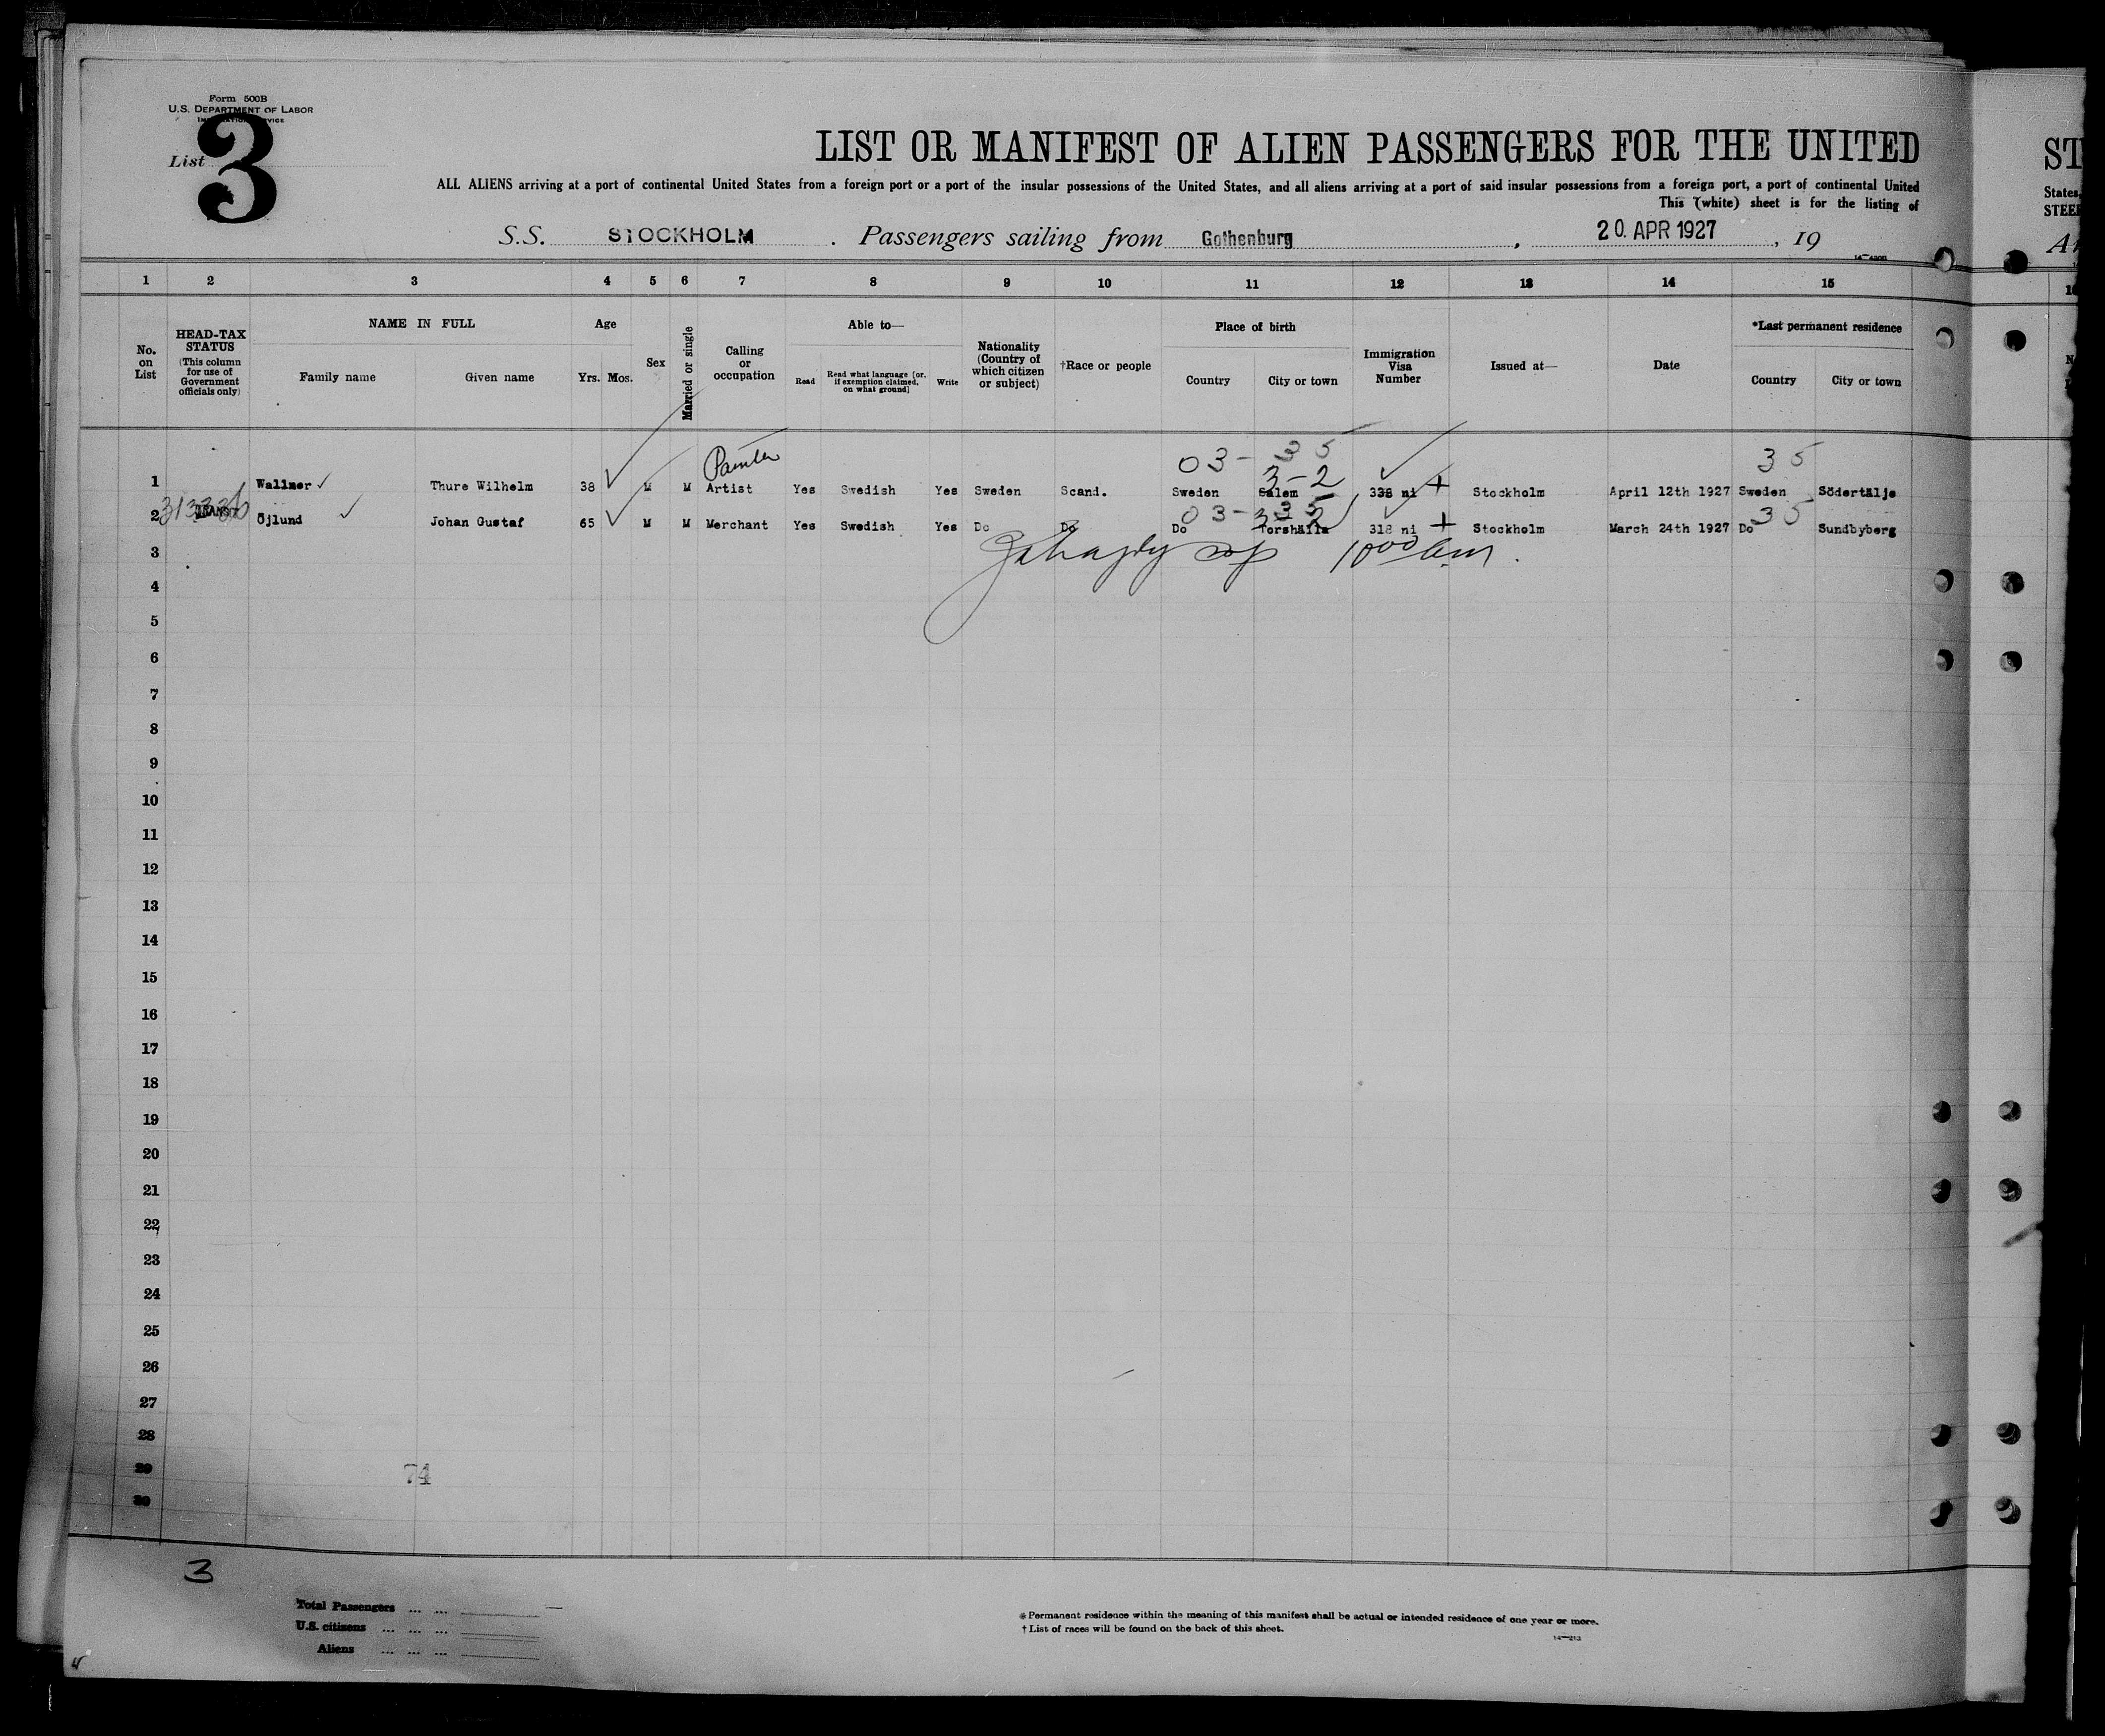 Form 500B
U.S. DEPARTMENT OF LABOR
List 3
LIST OR MANIFEST OF ALIEN PASSENGERS FOR THE UNITED
ALL ALIENS arriving at a port of continental United States from a foreign port or a port of the insular possessions of the United States, and all aliens arriving at a port of said insular possessions from a foreign port, a port of continental United
This (white) sheet is for the listing of
S.S. STOCKHOLM . Passengers sailing from Gothenburg , 20. APR 1927 , 19
ST
States,
1 2 3 4 5 6 7 8 9 10 11 12 13 14 15
No. on List
HEAD-TAX STATUS (This column for use of Government officials only)
NAME IN FULL
Family name Given name
Age
Yrs. Mos.
Sex
Married or single
Calling or occupation
Able to—
Read
Read what language [or, if exemption claimed, on what ground]
Write
Nationality (Country of which citizen or subject)
†Race or people
Place of birth
Country City or town
Immigration Visa Number
Issued at—
Date
*Last permanent residence
Country City or town
Painter 03- 35 35
3-2
1 Wallner ✓ Thure Wilhelm 38 M M Artist Yes Swedish Yes Sweden Scand. Sweden Salem 338 ni + Stockholm April 12th 1927 Sweden Södertälje
03-35 35
2 TRANSIT Öjlund ✓ Johan Gustaf 65 M M Merchant Yes Swedish Yes Do Do Do Torshälla 318 ni + Stockholm March 24th 1927 Do Sundbyberg
3
4
5
6
7
8
9
10
11
12
13
14
15
16
17
18
19
20
21
22
23
24
25
26
27
28
29
30
74
3
Total Passengers ... ...
U.S. citizens ... ... ...
Aliens ... ... ...
*Permanent residence within the meaning of this manifest shall be actual or intended residence of one year or more.
†List of races will be found on the back of this sheet.
14—213